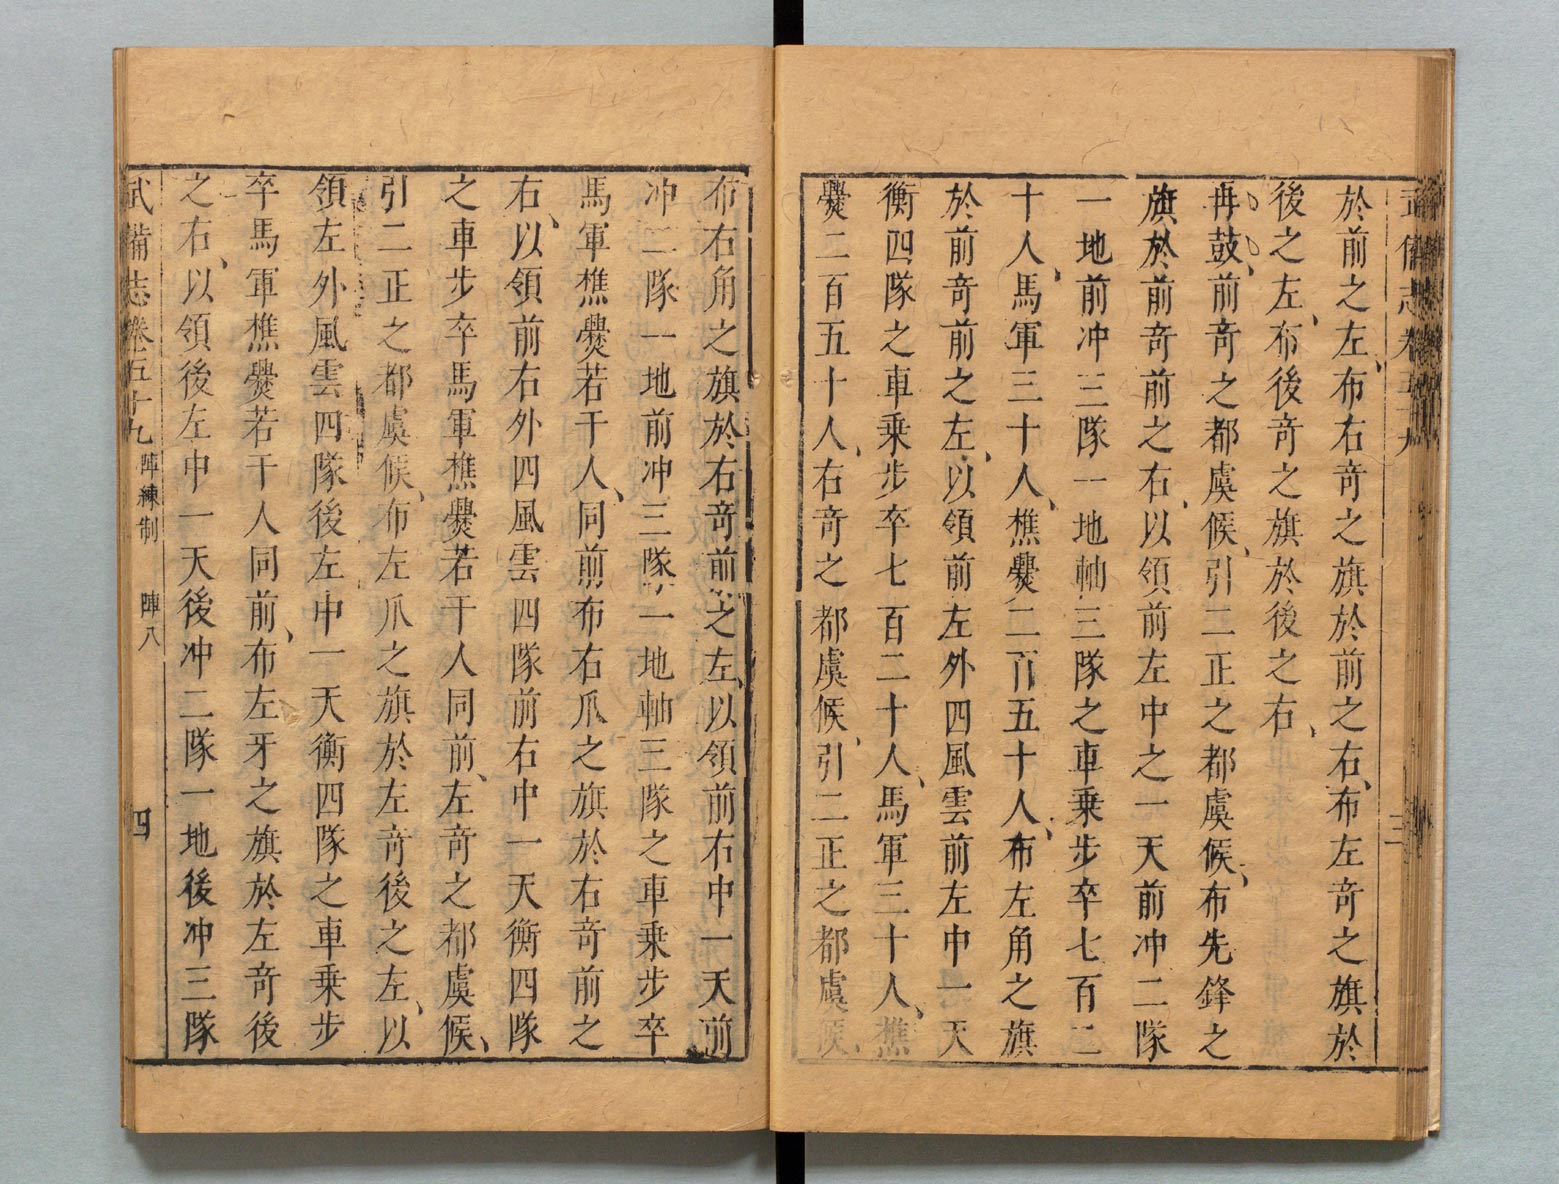 武備志卷五十九
三
於前之左、布右奇之旗於前之右、布左奇之旗於
後之左、布後奇之旗於後之右、
再鼓、前奇之都虞候、引二正之都虞候、布先鋒之
旗於前奇前之右、以領前左中之一天前冲二隊
一地前冲三隊一地軸三隊之車乗步卒七百二
十人、馬軍三十人、樵㸑二百五十人、布左角之旗
於前奇前之左、以領前左外四風雲前左中一天
衡四隊之車乗步卒七百二十人、馬軍三十人、樵
㸑二百五十人、右奇之都虞候、引二正之都虞候、
布右角之旗於右奇前之左、以領前右中一天前
冲二隊一地前冲三隊一地軸三隊之車乗步卒
馬軍樵㸑若干人、同前布右爪之旗於右奇前之
右、以領前右外四風雲四隊前右中一天衡四隊
之車步卒馬軍樵㸑若干人同前、左奇之都虞候、
引二正之都虞候、布左爪之旗於左奇後之左、以
領左外風雲四隊後左中一天衡四隊之車乗步
卒馬軍樵㸑若干人同前、布左牙之旗於左奇後
之右、以領後左中一天後冲二隊一地後冲三隊
武備志卷五十九 陣練制 陣八 四